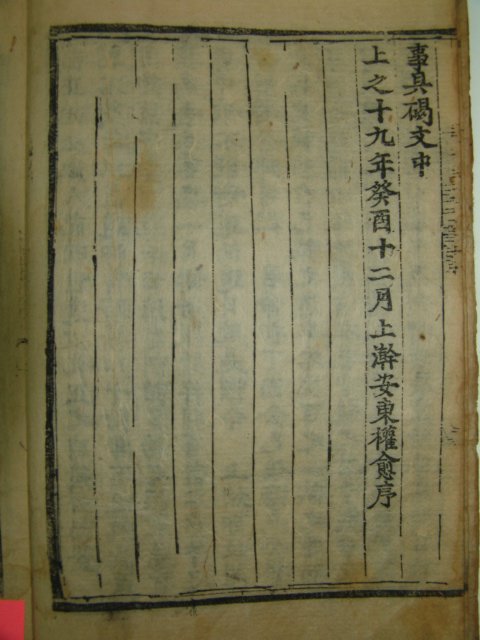 事具碣文中
上之十九年癸酉十二月上澣安東權愈序